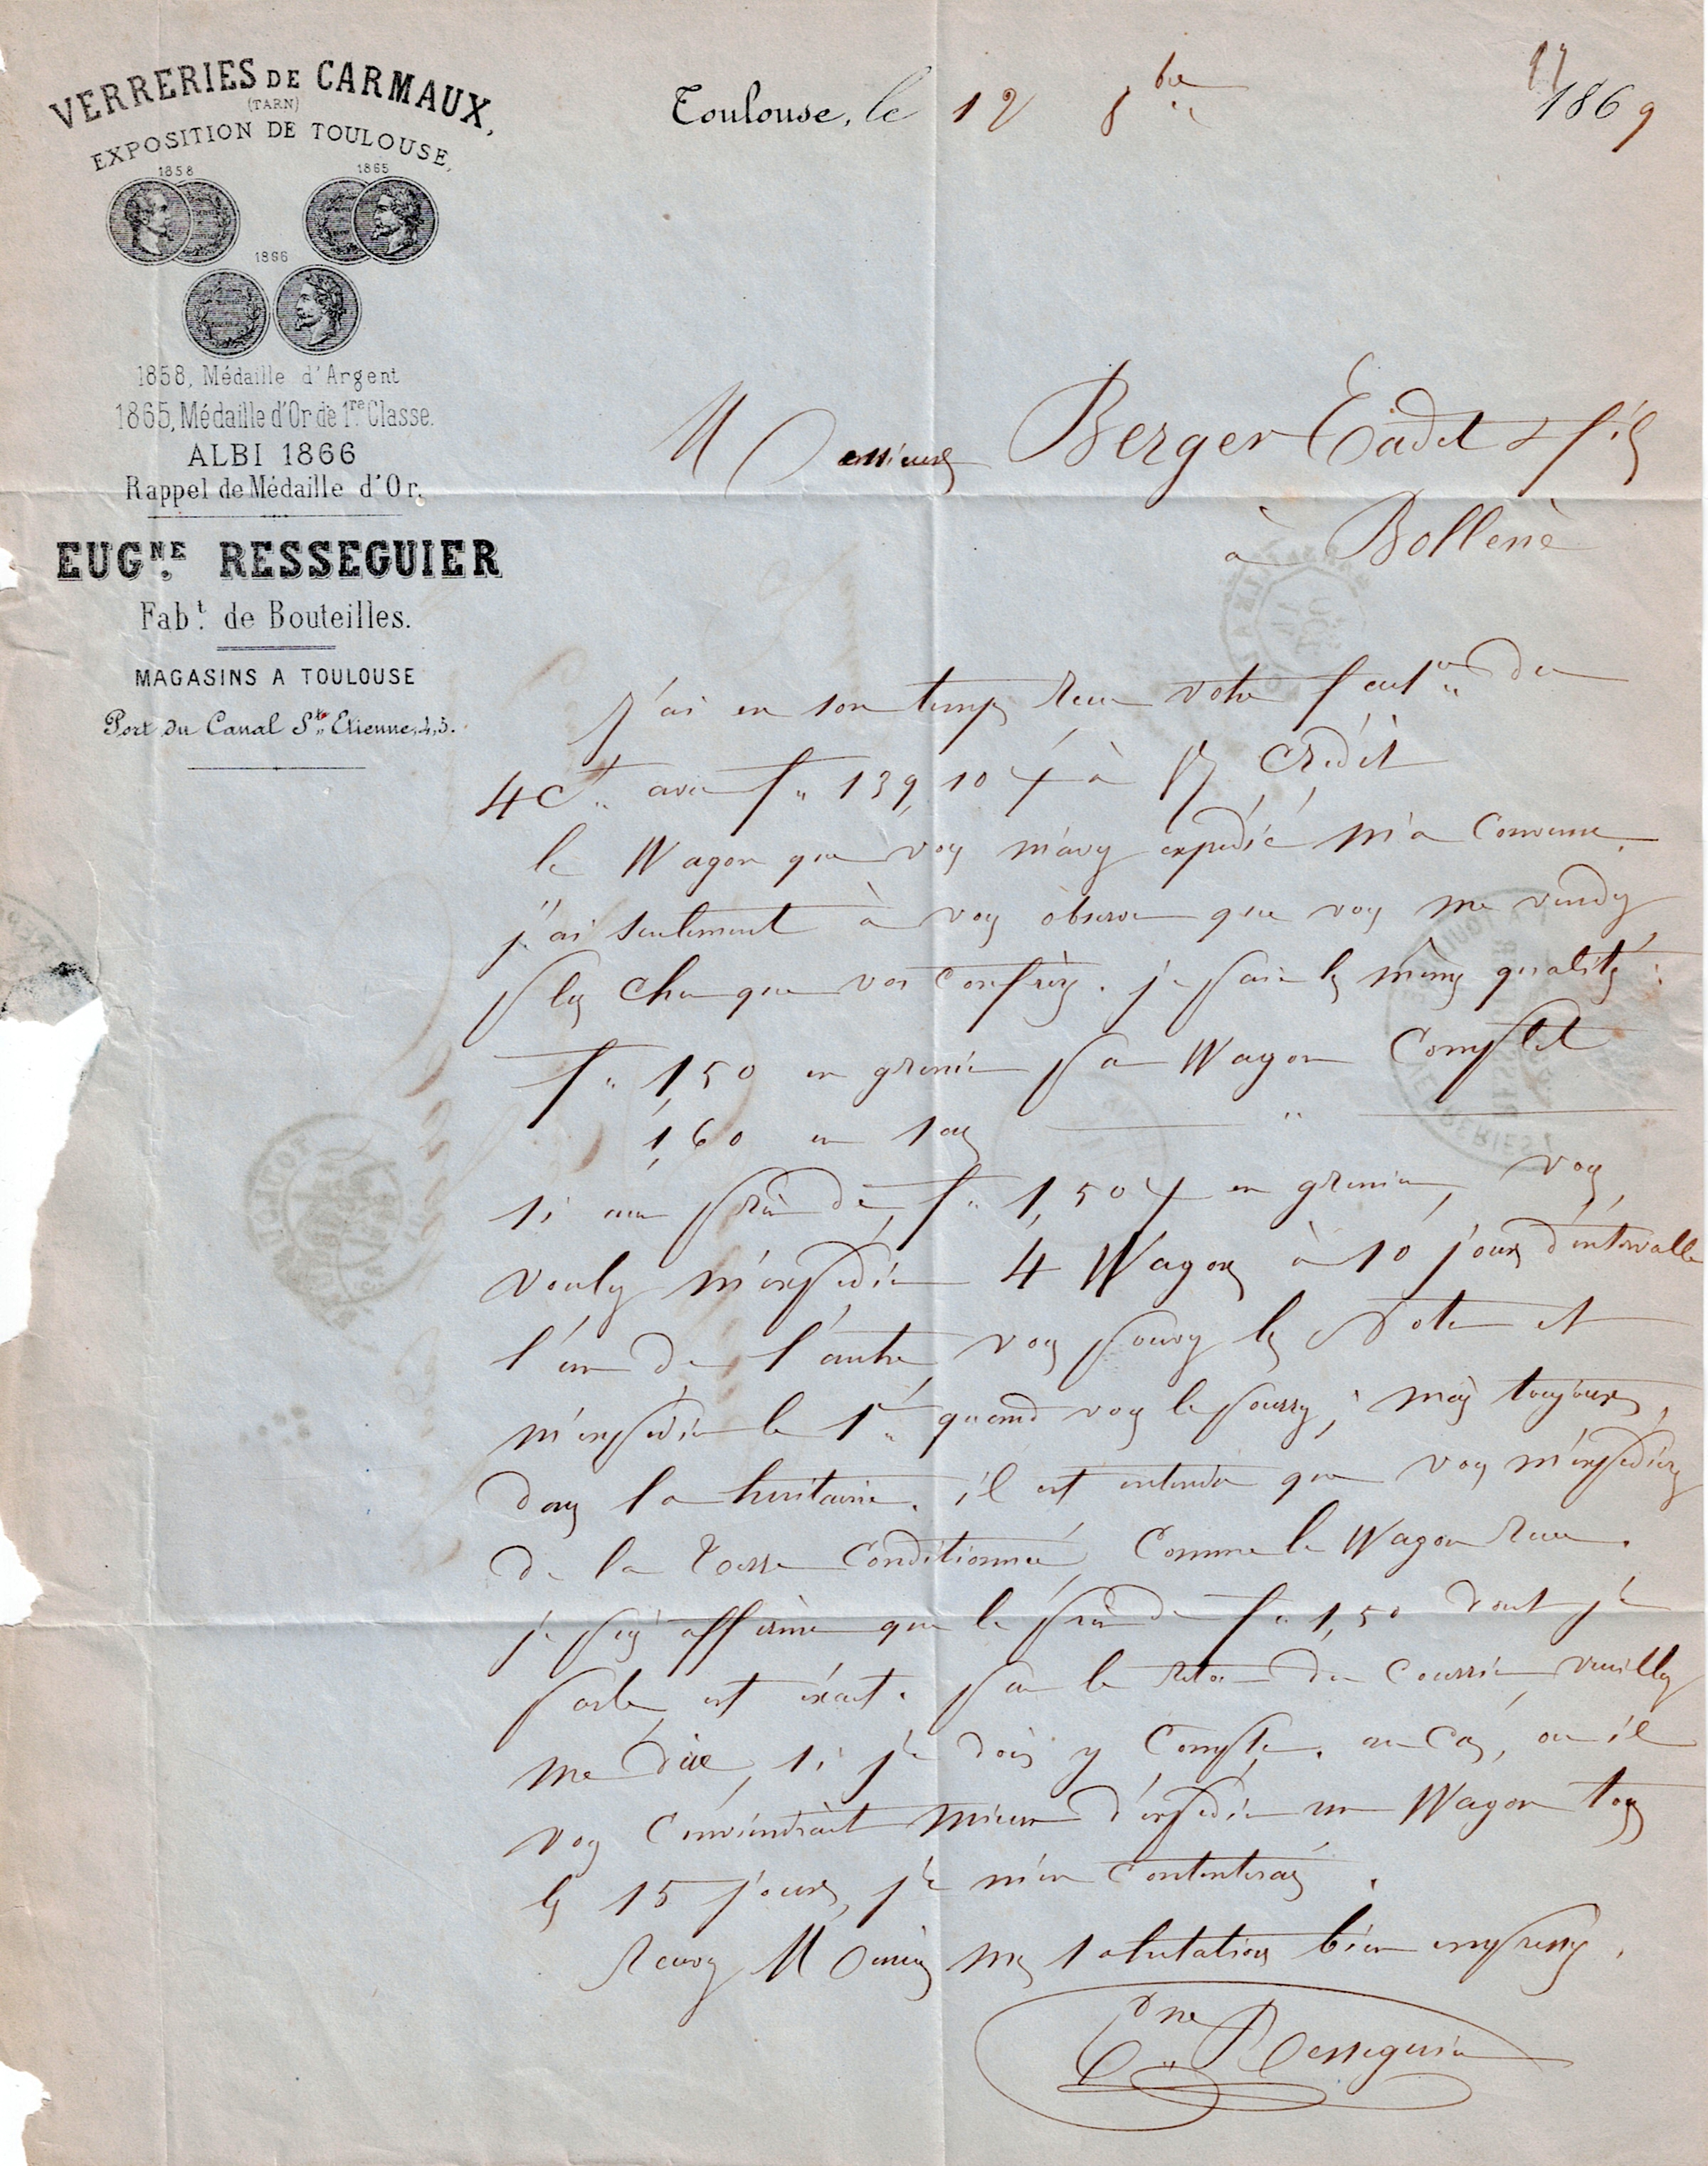 VERRERIES DE CARMAUX,
(TARN)
EXPOSITION DE TOULOUSE,
1858 1865
1866
1858, Médaille d'Argent
1865, Médaille d'Or de 1re Classe.
ALBI 1866
Rappel de Médaille d'Or.
EUGNE RESSEGUIER
Fabt. de Bouteilles.
MAGASINS A TOULOUSE
Port du Canal St. Etienne, 4, 5.
17
Toulouse, le 12 8bre 1869
Messieurs Berger Cadet & fils
à Bollène
J'ai en son temps reçu votre fact.re du
4 Ct. avec f. 139,10 à Crédit
le Wagon que vous m'avez expédié m'a Convenu.
j'ai seulement à vous observer que vous me vendez
plus cher que vos Confrères. je paie les mêmes qualités :
f. 1,50 en grenier par Wagon Complet
1,60 en sac "
si au prix de f. 1,50 en grenier, vous
voulez m'expédier 4 Wagons à 10 jours d'intervalle
l'un de l'autre, vous pouvez les noter et
m'expédier le 1er quand vous le pourrez, mais toujours
dans la huitaine. il est entendu que vous m'expédierez
de la Terre Conditionnée, Comme le Wagon reçu.
je puis affirmer que le prix de f. 1,50 dont je
parle, est exact. par le retour du Courrier, veuillez
me dire, si je dois y Compter. au Cas, où il
vous Conviendrait mieux d'expédier un Wagon tous
les 15 jours, je m'en Contenterai.
Recevez Messieurs mes salutations bien empressées.
Eugne Resseguier